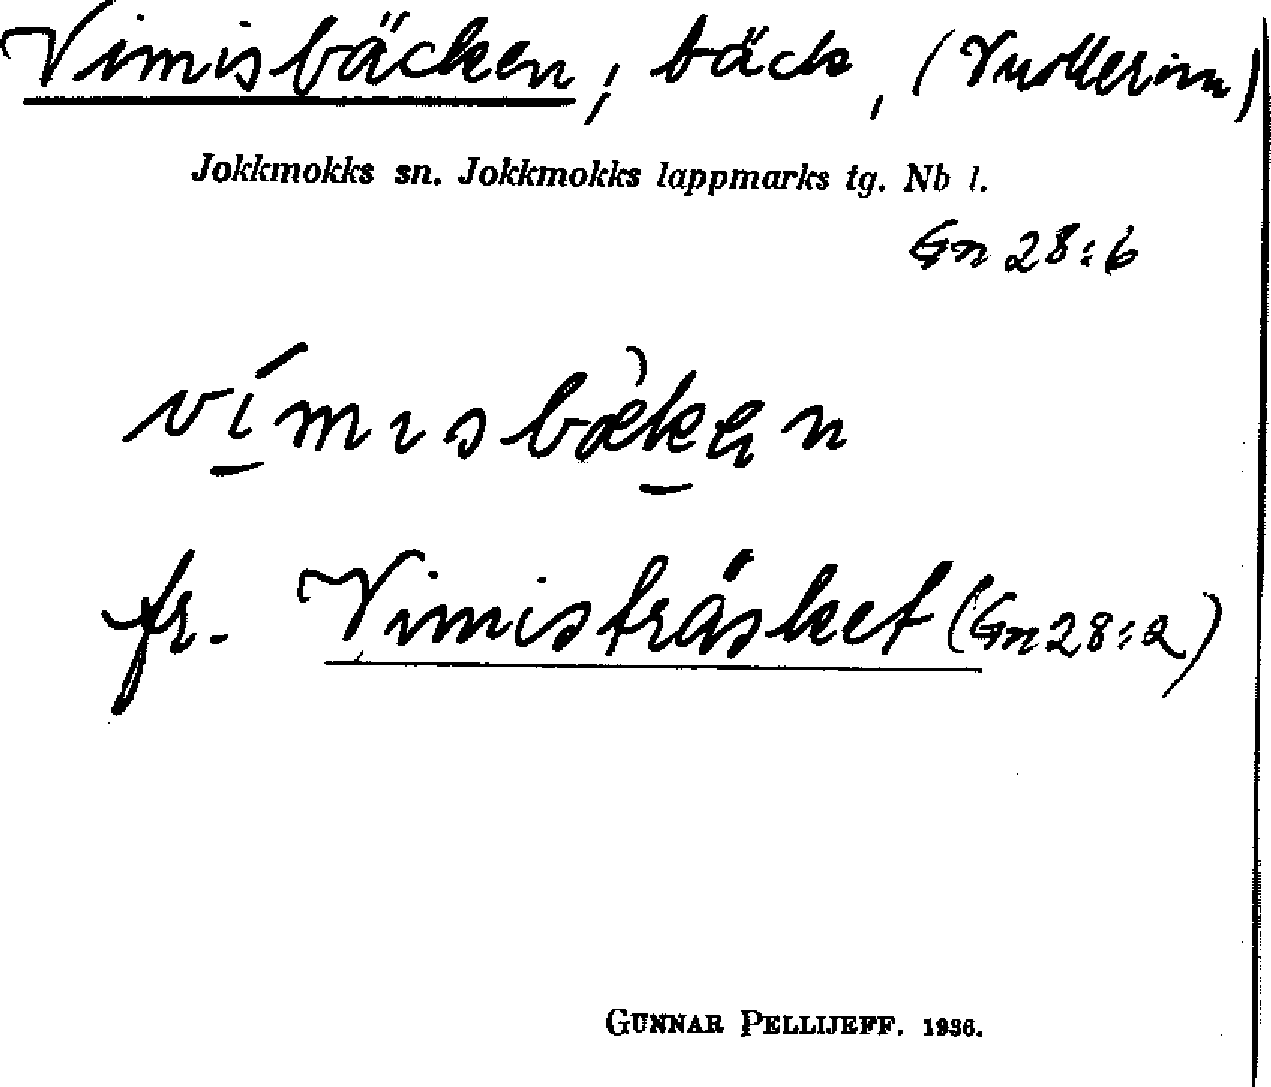 Vimisbäcken, bäck, (Vuollerim)
Jokkmokks sn. Jokkmokks lappmarks tg. Nb l.
Gn 28:6
vímısbæ̀kən
fr. Vimisträsket (Gn 28:2)
GUNNAR PELLIJEFF. 1936.